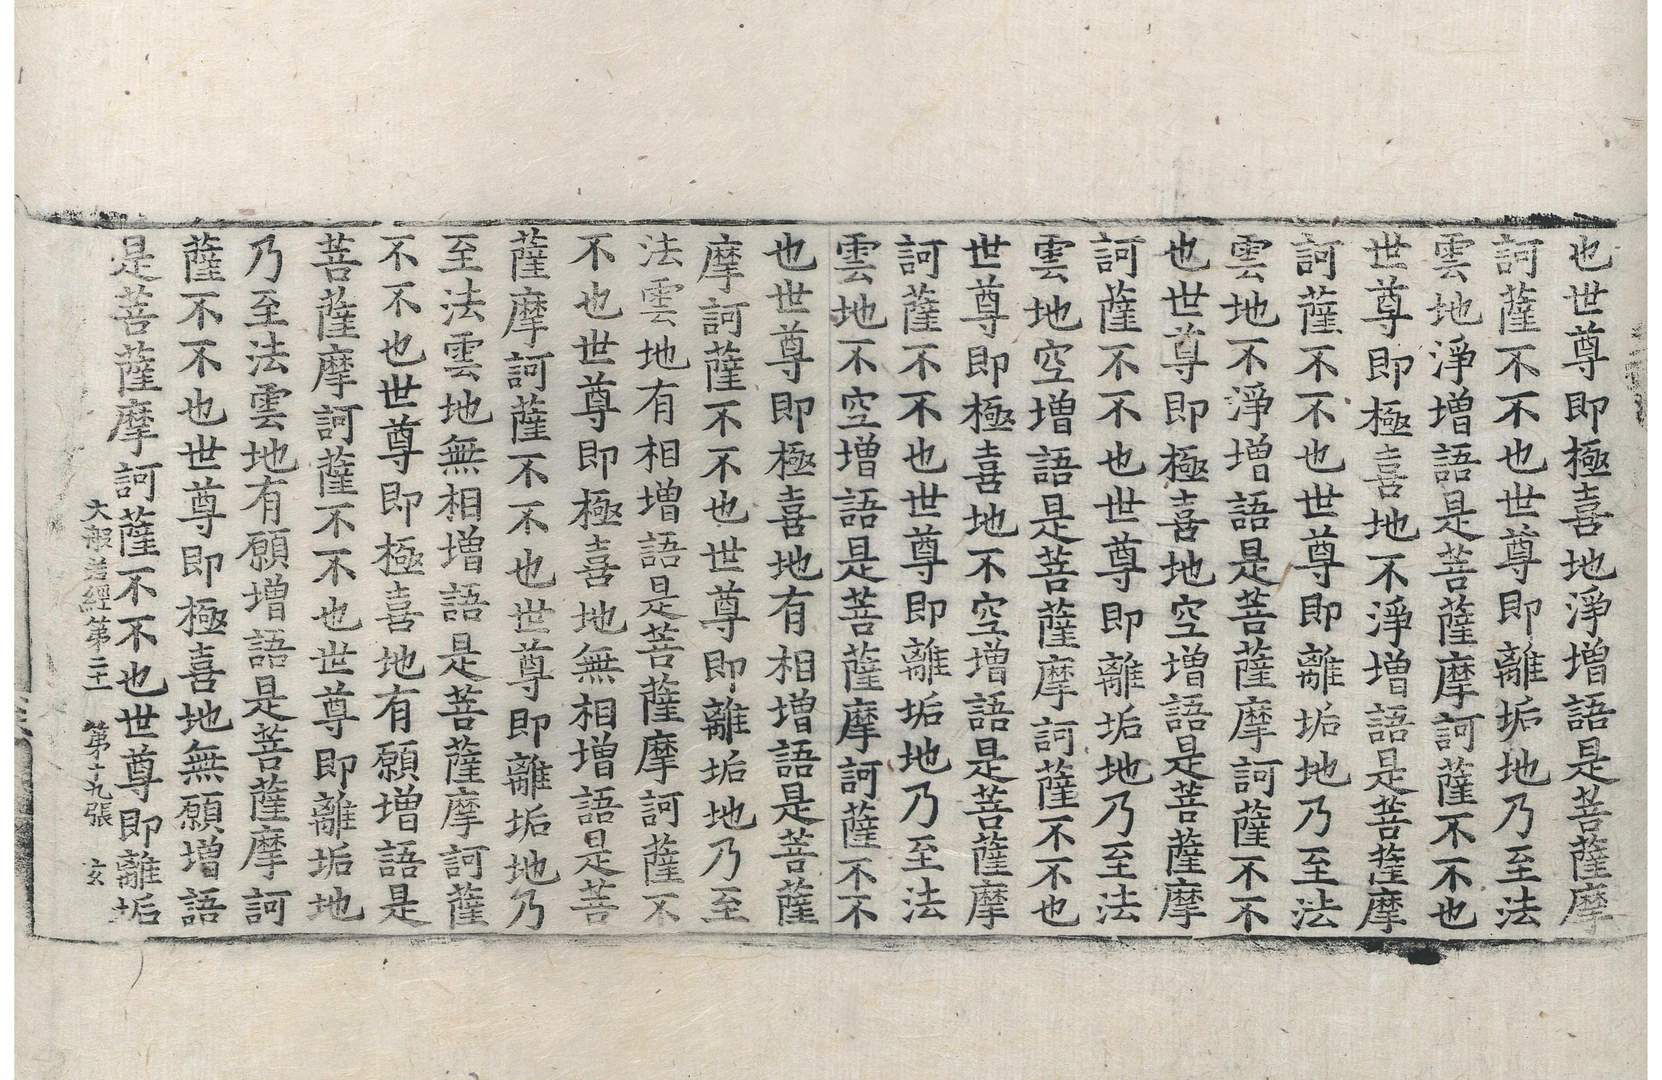 也世尊即極喜地淨增語是菩薩摩
訶薩不不也世尊即離垢地乃至法
雲地淨增語是菩薩摩訶薩不不也
世尊即極喜地不淨增語是菩薩摩
訶薩不不也世尊即離垢地乃至法
雲地不淨增語是菩薩摩訶薩不不
也世尊即極喜地空增語是菩薩摩
訶薩不不也世尊即離垢地乃至法
雲地空增語是菩薩摩訶薩不不也
世尊即極喜地不空增語是菩薩摩
訶薩不不也世尊即離垢地乃至法
雲地不空增語是菩薩摩訶薩不不
也世尊即極喜地有相增語是菩薩
摩訶薩不不也世尊即離垢地乃至
法雲地有相增語是菩薩摩訶薩不
不也世尊即極喜地無相增語是菩
薩摩訶薩不不也世尊即離垢地乃
至法雲地無相增語是菩薩摩訶薩
不不也世尊即極喜地有願增語是
菩薩摩訶薩不不也世尊即離垢地
乃至法雲地有願增語是菩薩摩訶
薩不不也世尊即極喜地無願增語
是菩薩摩訶薩不不也世尊即離垢
大般若經第二十一 第十九張 玄